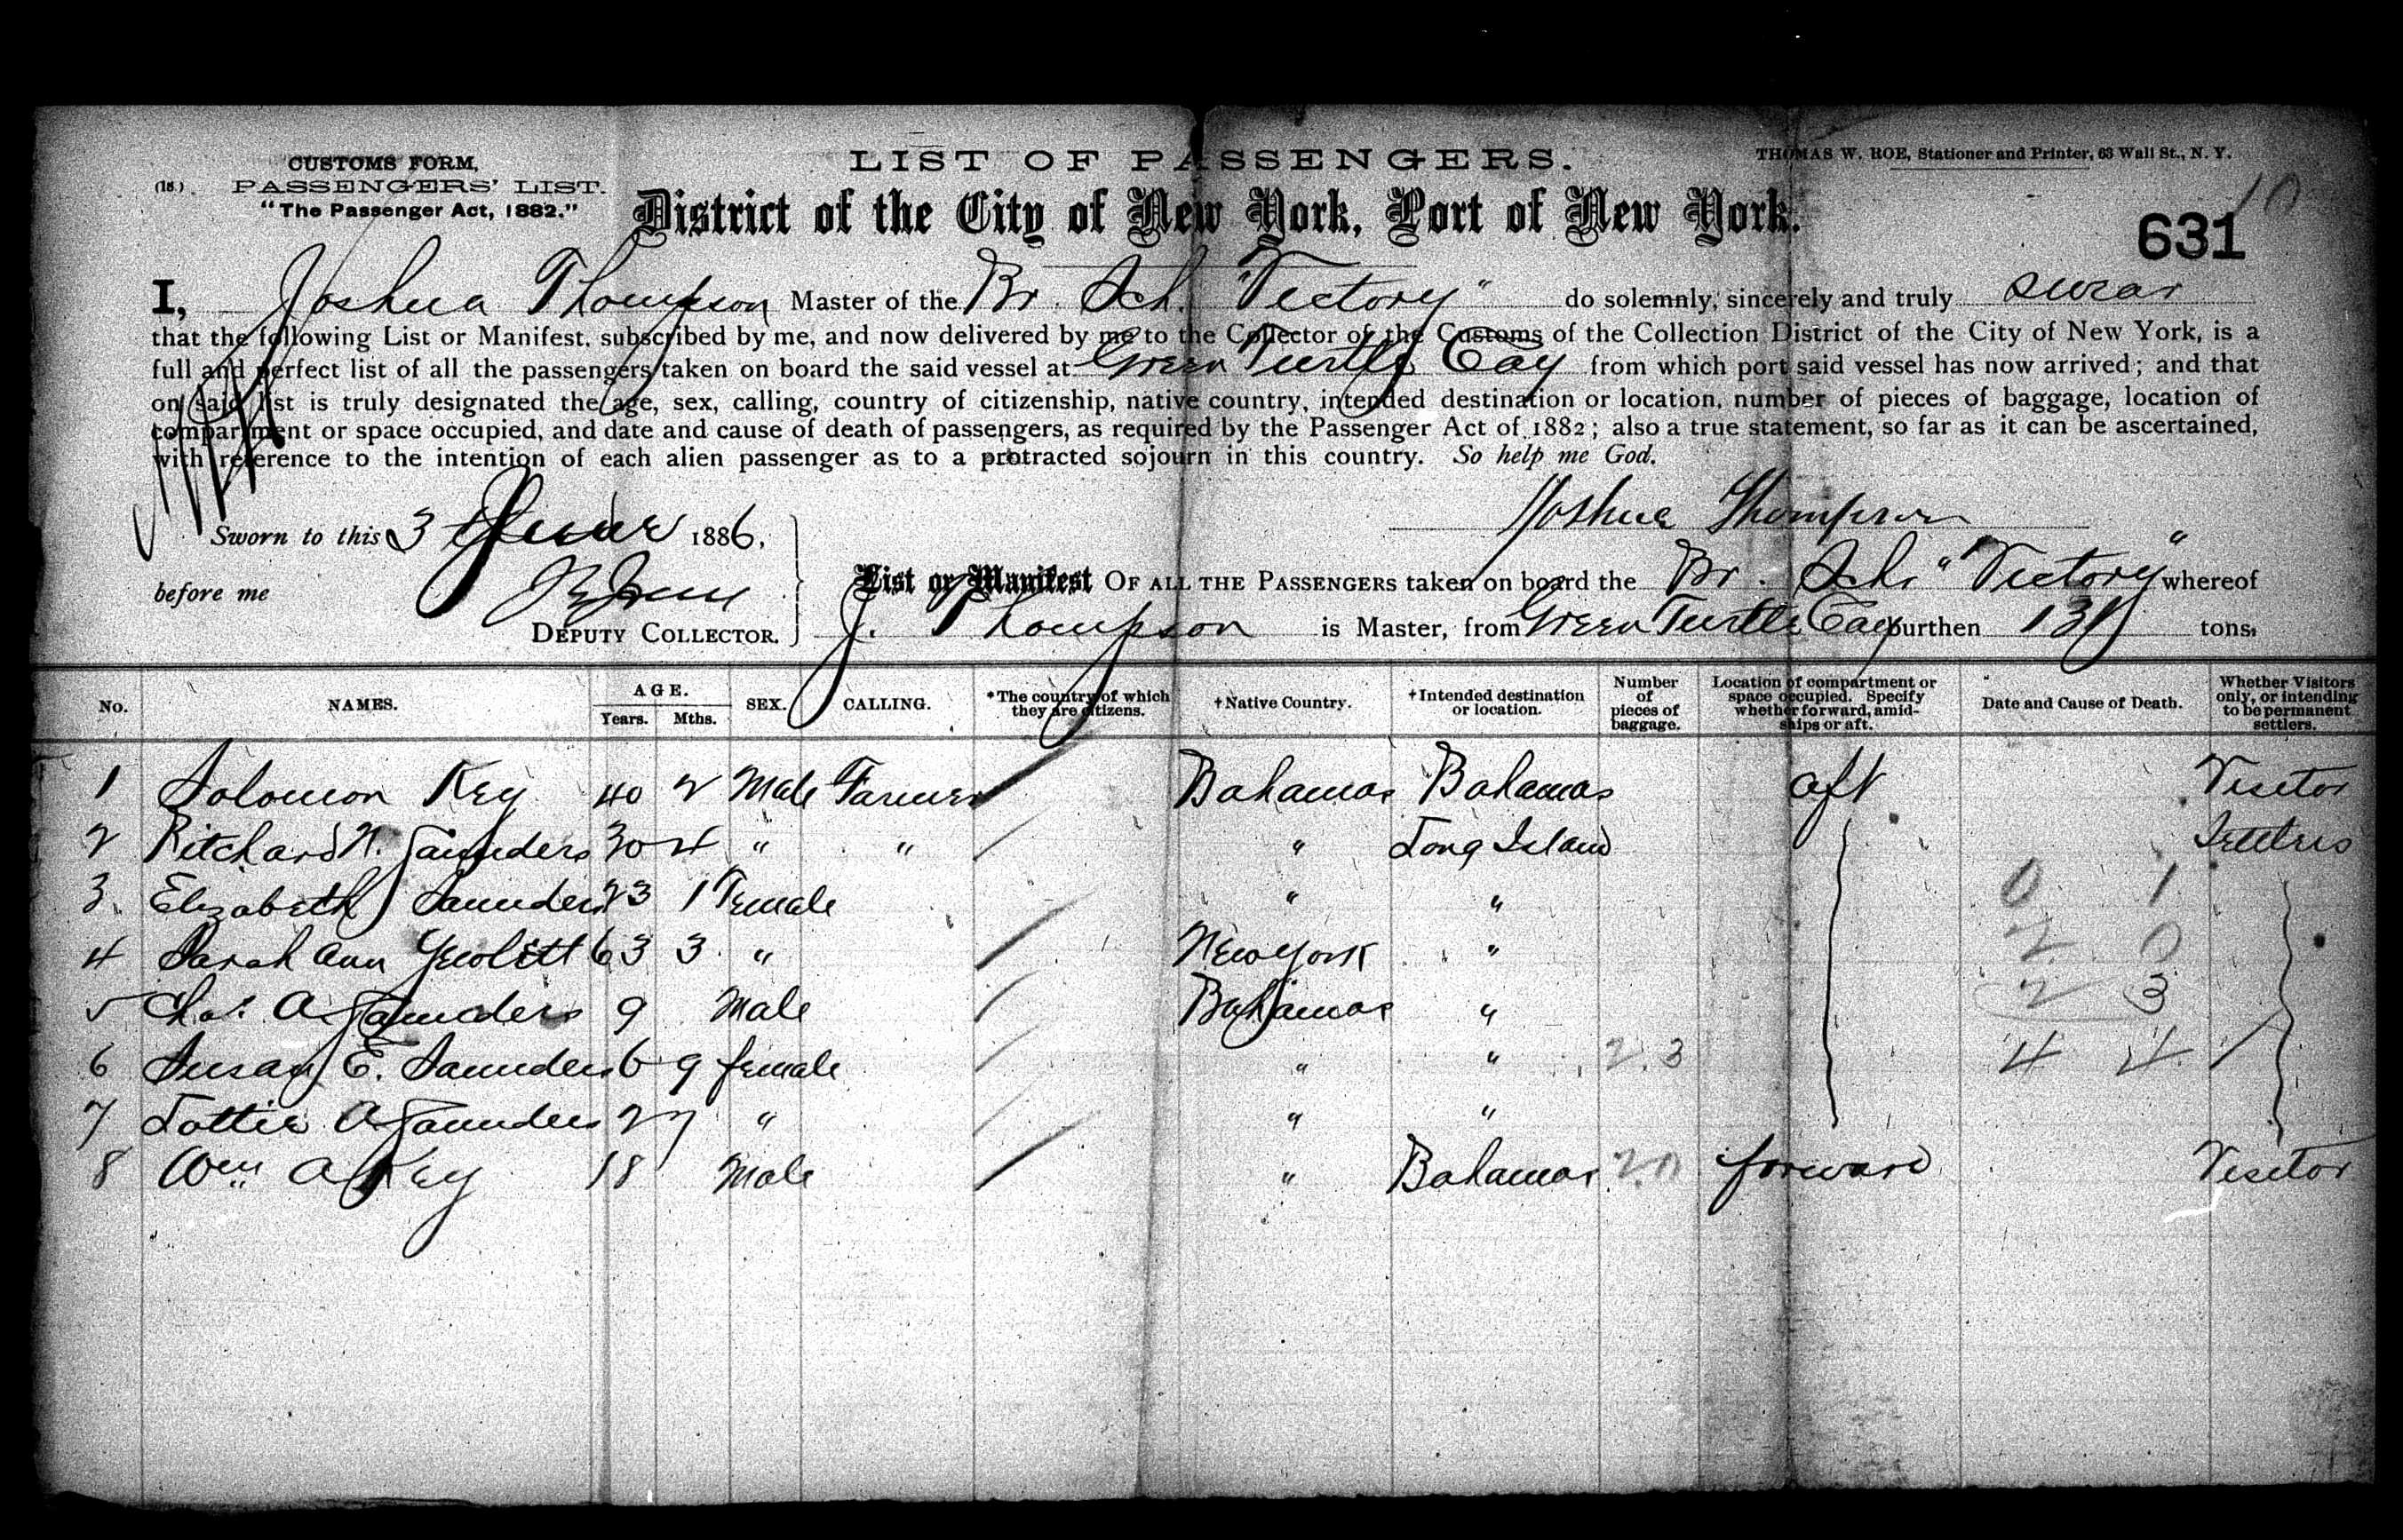 CUSTOMS FORM,
(18.) PASSENGERS' LIST.
"The Passenger Act, 1882."
LIST OF PASSENGERS.
THOMAS W. ROE, Stationer and Printer, 63 Wall St., N. Y.
District of the City of New York, Port of New York.
10
631
I, Joshua Thompson Master of the Br. Sch. "Victory" do solemnly, sincerely and truly swear
that the following List or Manifest, subscribed by me, and now delivered by me to the Collector of the Customs of the Collection District of the City of New York, is a
full and perfect list of all the passengers taken on board the said vessel at Green Turtle Cay from which port said vessel has now arrived; and that
on said list is truly designated the age, sex, calling, country of citizenship, native country, intended destination or location, number of pieces of baggage, location of
compartment or space occupied, and date and cause of death of passengers, as required by the Passenger Act of 1882; also a true statement, so far as it can be ascertained,
with reference to the intention of each alien passenger as to a protracted sojourn in this country. So help me God.
Joshua Thompson
Sworn to this 3 June 1886,
before me
DEPUTY COLLECTOR.
List or Manifest OF ALL THE PASSENGERS taken on board the Br. Sch. "Victory" whereof
J. Thompson is Master, from Green Turtle Cay burthen 131 tons.
No. NAMES. AGE. Years. Mths. SEX. CALLING. *The country of which they are citizens. †Native Country. †Intended destination or location. Number of pieces of baggage. Location of compartment or space occupied. Specify whether forward, amidships or aft. Date and Cause of Death. Whether Visitors only, or intending to be permanent settlers.
1 Solomon Key 40 2 Male Farmer Bahamas Bahamas aft Visitor
2 Ritchard N. Saunders 30 4 " " " Long Island Settlers
3 Elizabeth Saunders 23 1 Female " " 0 1
4 Sarah Ann 63 3 " New York " 2 0
5 Chas. A Saunders 9 Male Bahamas " 2 3
6 Susan E. Saunders 6 9 female " " 2.3 4 4
7 Lottie A Saunders 2 7 " " "
8 Wm A Key 18 Male " Bahamas 2.0 forward Visitor